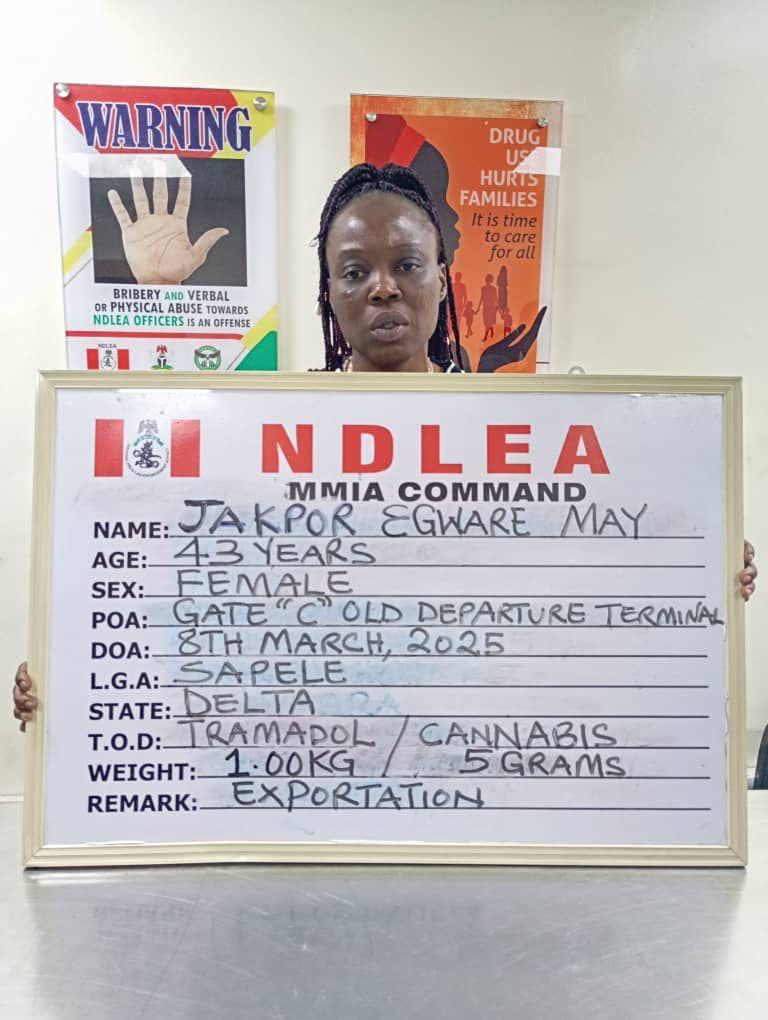 WARNING
BRIBERY AND VERBAL
OR PHYSICAL ABUSE TOWARDS
NDLEA OFFICERS IS AN OFFENSE
NDLEA
DRUG
USE
HURTS
FAMILIES
It is time
to care
for all
NDLEA
MMIA COMMAND
NAME: JAKPOR EGWARE MAY
AGE: 43 YEARS
SEX: FEMALE
POA: GATE "C" OLD DEPARTURE TERMINAL
DOA: 8TH MARCH, 2025
L.G.A: SAPELE
STATE: DELTA
T.O.D: TRAMADOL / CANNABIS
WEIGHT: 1.00KG / 5 GRAMS
REMARK: EXPORTATION